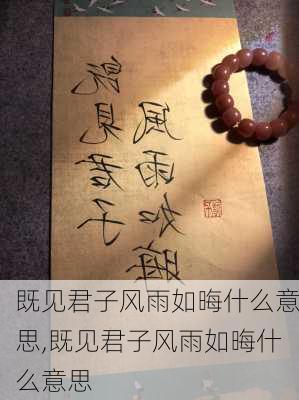 既見君子
風雨如晦
既见君子风雨如晦什么意
思,既见君子风雨如晦什
么意思